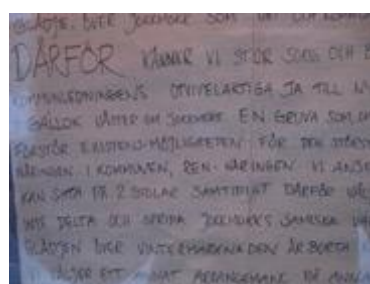 GLÄDJE ÖVER JOKKMOKK SOM
DÄRFÖR KÄNNER VI STOR SORG OCH
KOMMUNLEDNINGENS OTVIVELAKTIGA JA TILL
GÁLLOK VÄSTER OM JOKKMOKK. EN GRUVA SOM
FÖRSTÖR EXISTENS-MÖJLIGHETEN FÖR DEN STÖRSTA
NÄRINGEN I KOMMUNEN, REN-NÄRINGEN. VI
KAN SITTA PÅ 2 STOLAR SAMTIDIGT DÄRFÖR
INTE DELTA OCH SPRIDA JOKKMOKKS SAMISKA
GLÄDJEN ÖVER VINTERMARKNADEN ÄR BORTA
VI VÄLJER ETT ANNAT ARRANGEMANG PÅ